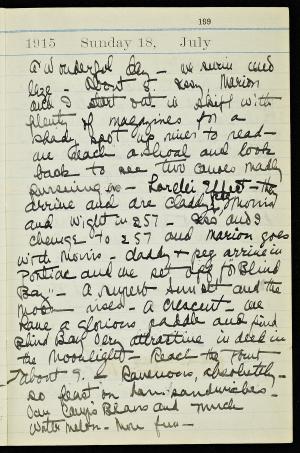 199
1915 Sunday 18, July
A Wonderful day - we swim and
laze - About 5. Izzy, Marion
and I start out in skiff with
plenty of magazines for a
shady spot up river to read -
we reach a shoal and look
back to see two canoes madly
pursueing us - Lorelei Effect - they
arrive and are Claddy, Peg Morris
and Wight in 257 - and I
change to 257 and Marion goes
with Morris - daddy & peg arrive in
Pontiac and we set off to Blind
Bay - A superb sunset and the
Moon rises - A crescent - we
have a glorious paddle and find
Blind Bay very attractive indeed in
the moonlight - Reach the Point
about 9. Ravenous, absolutely -
so feast on ham sandwiches -
Van Camp's Beans and much
Water melon - More fun -